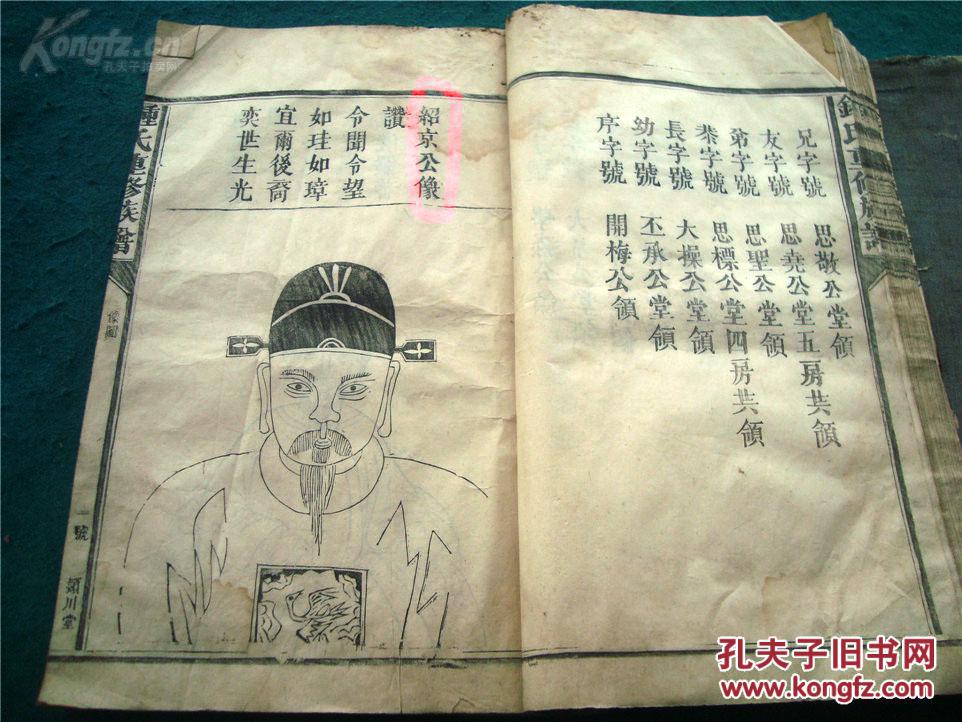 兄字號 思敬公堂領
友字號 思堯公堂五房共領
弟字號 思聖公堂領
恭字號 思標公堂四房共領
長字號 大操公堂領
幼字號 丕承公堂領
序字號 開梅公領
鍾氏重修族譜
紹京公像
讚
令聞令望
如珪如璋
宜爾後裔
奕世生光
鍾氏重修族譜
像圖
一號
潁川堂
Kongfz.cn
孔夫子拍卖网
孔夫子旧书网
www.kongfz.com